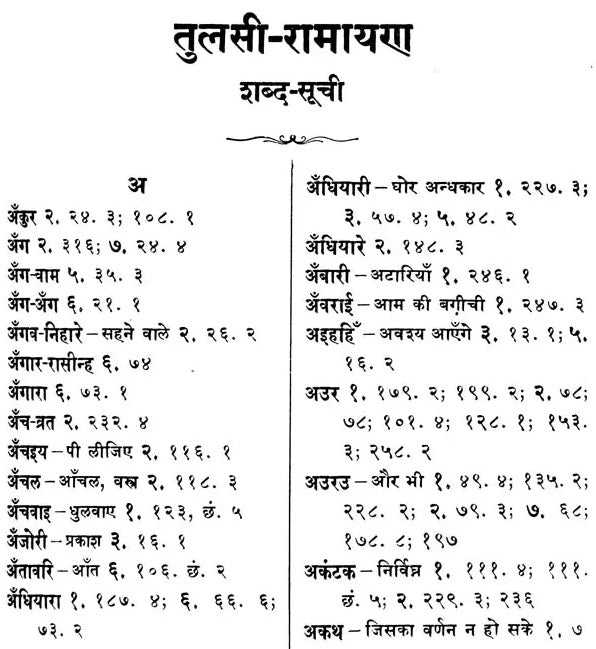 तुलसी-रामायण
शब्द-सूची
अ
अँकुर २. २४. ३; १०८. १
अँग २. ३१६; ७. २४. ४
अँग-बाम ५. ३५. ३
अँग-अँग ६. २१. १
अँगव-निहारे – सहने वाले २. २६. २
अँगार-रासीन्ह ६. ७४
अँगारा ६. ७३. १
अँच-व्रत २. २३२. ४
अँचइय – पी लीजिए २. ११६. १
अँचल – आँचल, वस्त्र २. ११८. ३
अँचवाइ – धुलवाए १. १२३, छं. ५
अँजोरी – प्रकाश ३. १६. १
अँतावरि – आँत ६. १०६. छं. २
अँधियारा १. १८७. ४; ६. ६६. ६;
७३. २
अँधियारी – घोर अन्धकार १. २२७. ३;
३. ५७. ४; ५. ४८. २
अँधियारे २. १४८. ३
अँबारी – अटारियाँ १. २४६. १
अँवराई – आम की बग़ीची १. २४७. ३
अइहहिँ – अवश्य आएँगे ३. १३. १; ५.
१६. २
अउर १. १७९. २; १९९. २; २. ७८;
७८; १०१. ४; १२८. १; १५३.
३; २५८. २
अउरउ – और भी १. ४९. ४; १३५. २;
२२८. २; २. ७९. ३; ७. ६८;
१७८. ८; १९७
अकंटक – निर्विघ्न १. १११. ४; १११.
छं. ५; २. २२९. ३; २३६
अकथ – जिसका वर्णन न हो सके १. ७